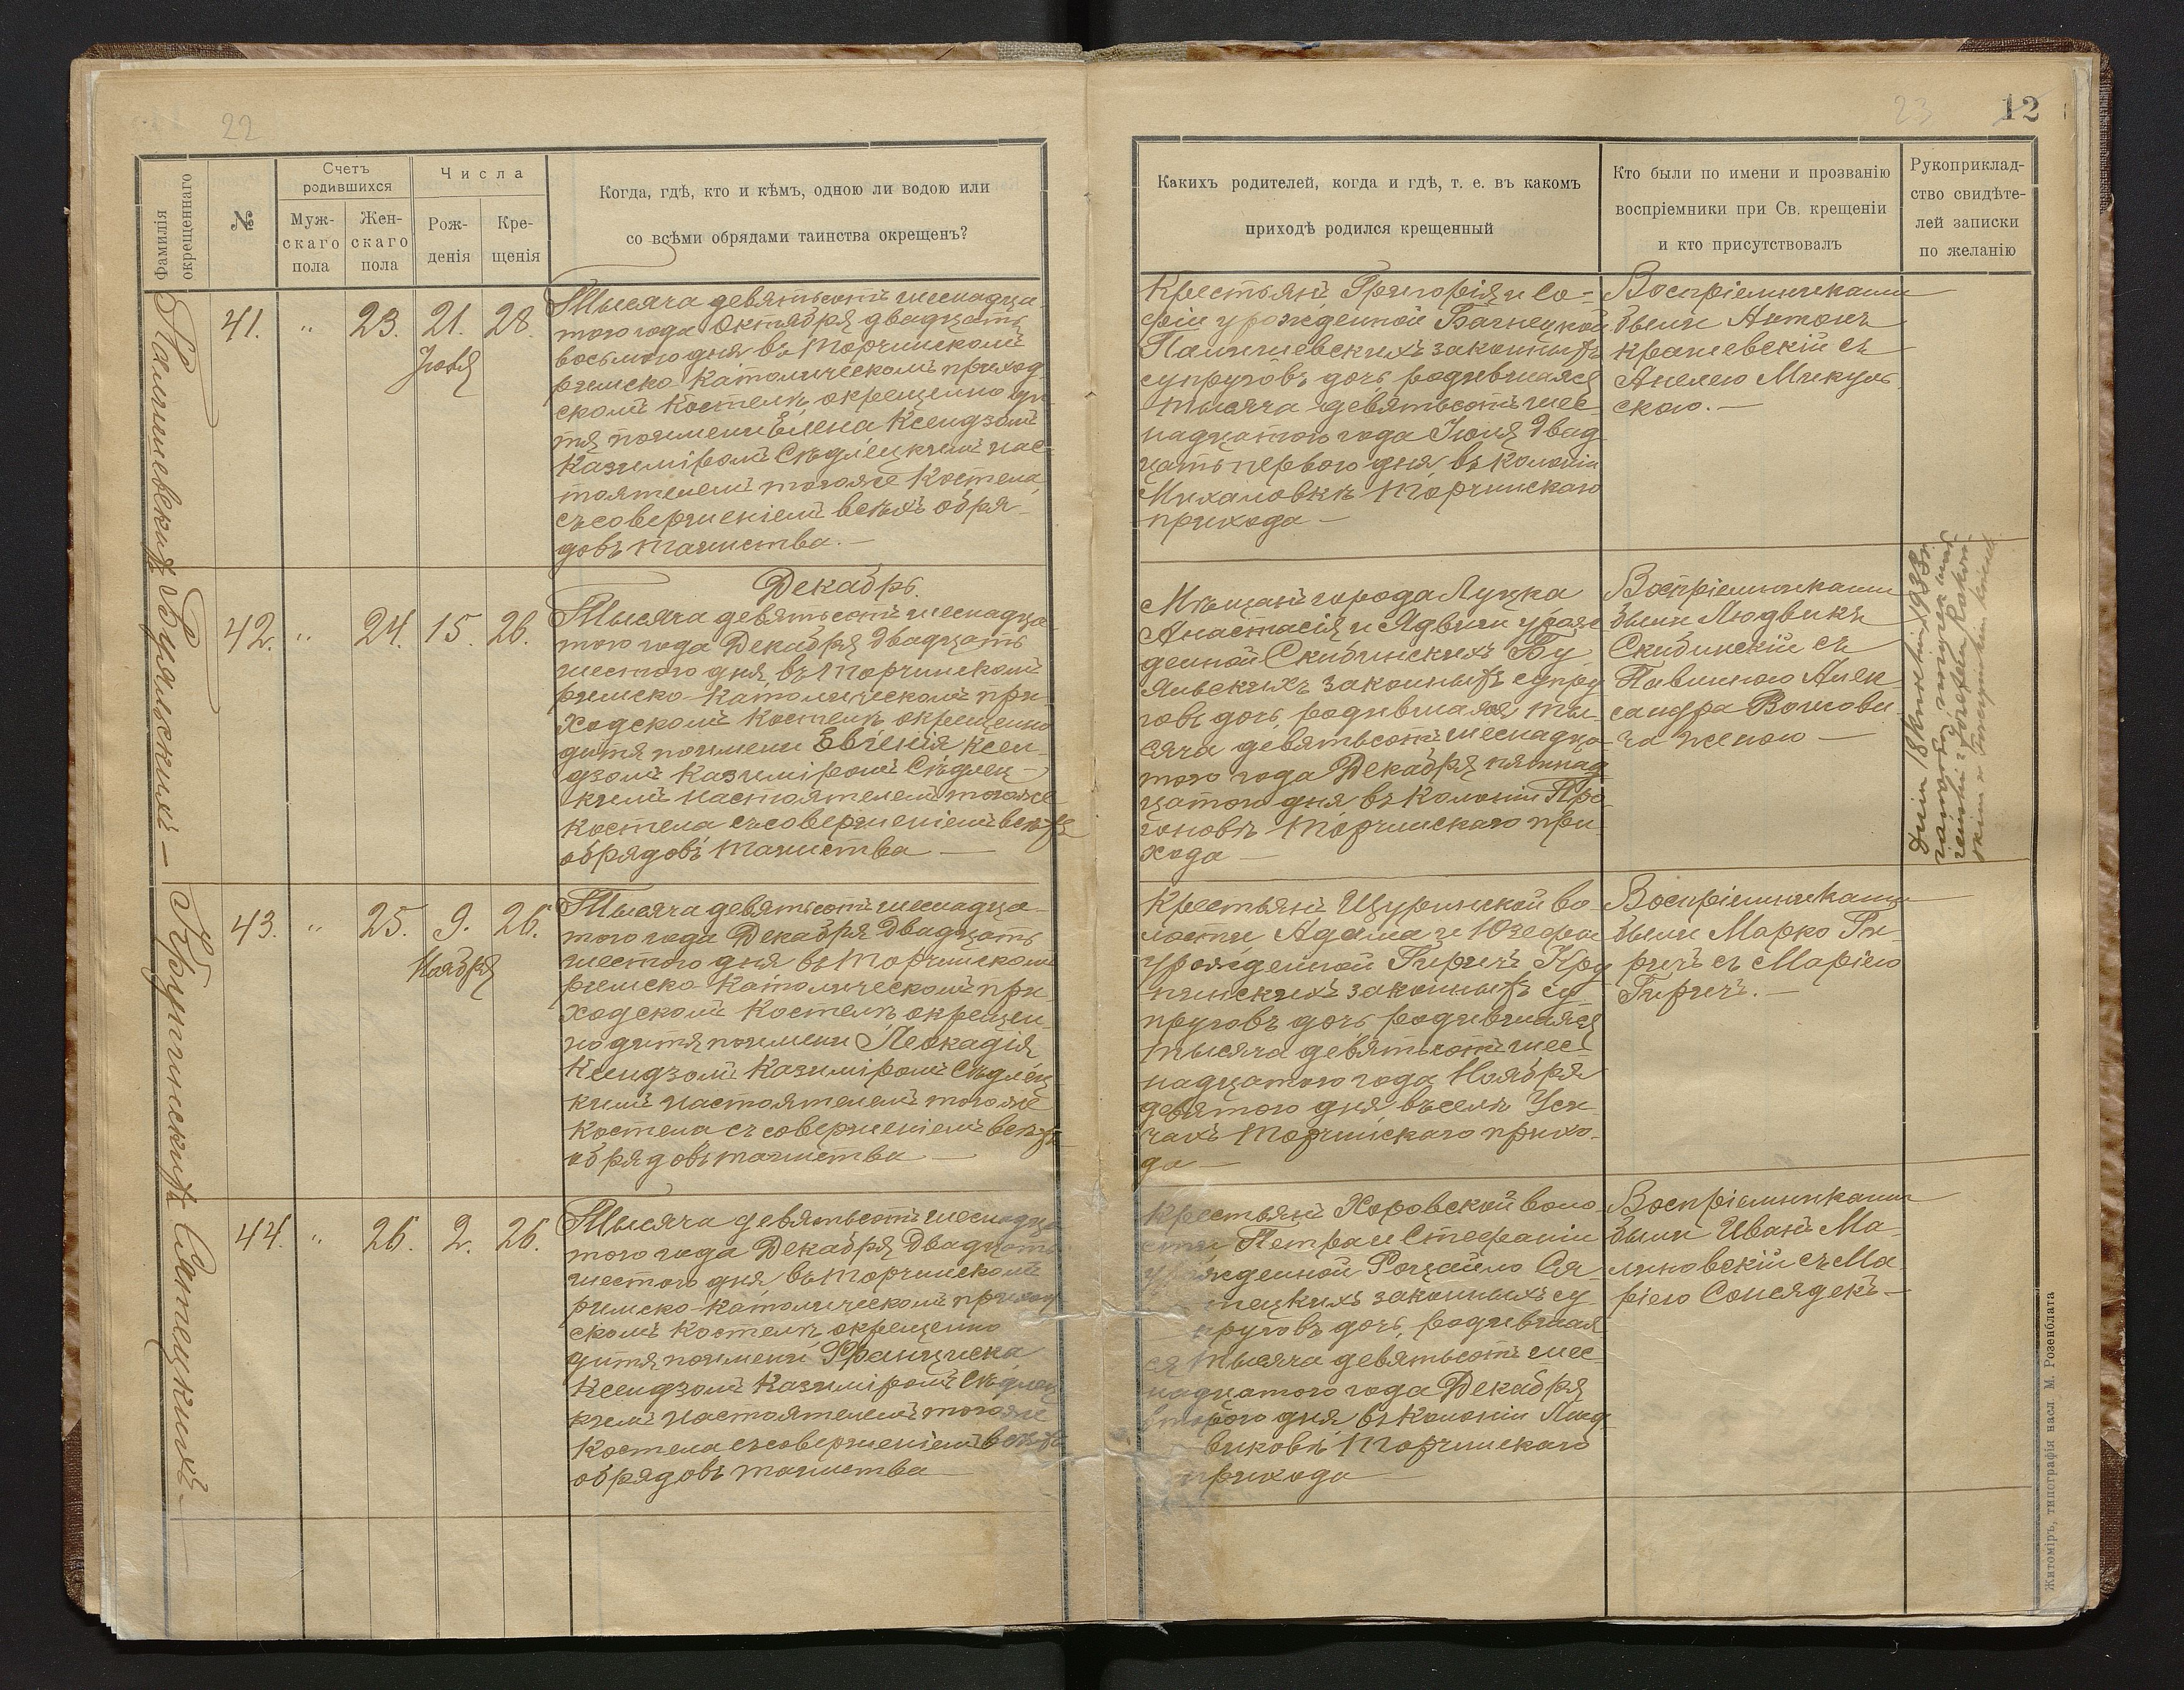 22
Фамилія
окрещеннаго
№
Счетъ
родившихся
Муж-
скаго
пола
Жен-
скаго
пола
Числа
Рож-
денія
Кре-
щенія
Когда, гдѣ, кто и кѣмъ, одною ли водою или
со всѣми обрядами таинства окрещенъ?
41.
"
23.
21.
Іюня
28.
Тысяча девятьсотъ шеснадца-
того года Октября двадцать
восьмого дня въ Торчинскомъ
римско-католическомъ приход
скомъ костелѣ окрещено ди-
тя по имени Елена Ксендзомъ
Казиміромъ Сѣдлецкимъ нас-
тоятелемъ того же костела
съ совершеніемъ всѣхъ обря-
довъ таинства.—
Бульскихъ —
42.
"
24.
15.
26.
Декабрь.
Тысяча девятьсотъ шеснадца
того года Декабря двадцать
шестого дня въ Торчинскомъ
римско-католическомъ при-
ходскомъ костелѣ окрещено
дитя по имени Евгенія Ксен-
дзомъ Казиміромъ Сѣдлец-
кимъ настоятелемъ того же
костела съ совершеніемъ всѣхъ
обрядовъ таинства —
Крупинскихъ
43.
"
25.
9.
Ноября
26.
Тысяча девятьсотъ шеснадца-
того года Декабря двадцать
шестого дня въ Торчинскомъ
римско-католическомъ при-
ходскомъ костелѣ окрещен-
но дитя по имени Леокадія
Ксендзомъ Казиміромъ Сѣдлец
кимъ настоятелемъ того же
костела съ совершеніемъ всѣхъ
обрядовъ таинства —
44.
"
26.
2.
26.
Тысяча девятьсотъ шеснадца
того года Декабря двадцать
шестого дня въ Торчинскомъ
римско-католическомъ приход
скомъ костелѣ окрещено
дитя по имени Франциска
Ксендзомъ Казиміромъ Сѣдлец
кимъ настоятелемъ того же
костела съ совершеніемъ всѣхъ
обрядовъ таинства
23
12
Какихъ родителей, когда и гдѣ, т. е. въ какомъ
приходѣ родился крещенный
Кто были по имени и прозванію
воспріемники при Св. крещеніи
и кто присутствовалъ
Рукоприклад-
ство свидѣте-
лей записки
по желанію
Крестьянъ Григорія и Со-
фіи урожденной Багнецкой
законныхъ
супруговъ дочь, родившаяся
тысяча девятьсотъ шес-
надцатого года Іюня двад
цать перваго дня въ колоніи
Михаловкѣ Торчинскаго
прихода —
Воспріемниками
были Антонъ
Крашевскій съ
Анелею Микуль
скою.—
Мѣщанъ города Луцка
Анастасія и Ядвиги урож
денной Скибинскихъ Бу
льскихъ законныхъ супру
говъ дочь, родившаяся ты-
сяча девятьсотъ шеснадца-
того года Декабря пятнад
цатого дня въ колоніи
Торчинскаго при
хода —
Воспріемниками
были Людвикъ
Скибинскій съ
Павлиною Алек
сандра
женою —
Dnia 18 kwietnia 1933 r.
Крестьянъ Щуринской во-
лости Адама и Юзефы
урожденной Гиричъ Кру
пинскихъ законныхъ су-
пруговъ дочь, родившаяся
тысяча девятьсотъ шес-
надцатого года Ноября
девятого дня въ селѣ Уси-
чахъ Торчинскаго прихо-
да —
Воспріемниками
были Марко Ги-
ричъ съ Маріею
Гиричъ.—
Крестьянъ Хоровской воло
сти Петра и Стефаніи
урожденной
законныхъ су-
пруговъ дочь, родившая
ся тысяча девятьсотъ шес-
надцатого года Декабря
второго дня въ колоніи Люд
виковкѣ Торчинскаго
прихода
Воспріемниками
были Иванъ Ма-
линовскій съ Ма
ріею
Житоміръ, типографія насл. М. Розенблата